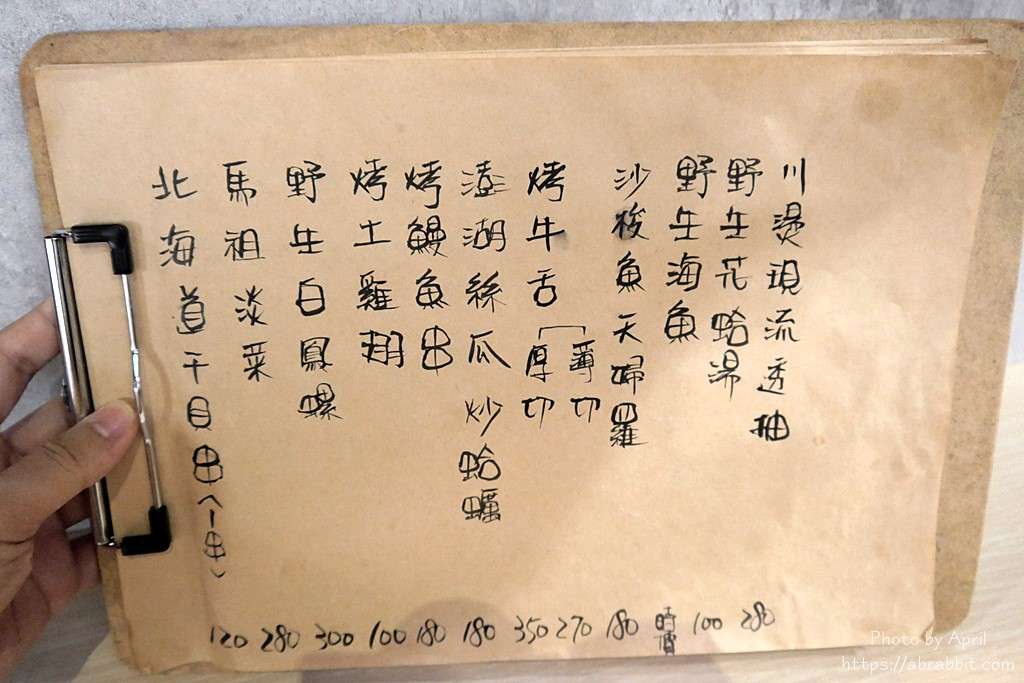 川燙現流透抽
野生花蛤湯
野生海魚
沙梭魚天婦羅
烤牛舌
薄切
厚切
澎湖絲瓜炒蛤蠣
烤鰻魚串
烤土雞翅
野生白鳳螺
馬祖淡菜
北海道干貝串(一串)
120 280 300 100 180 180 350 270 180 時價 100 280
Photo by April
https://abrabbit.com